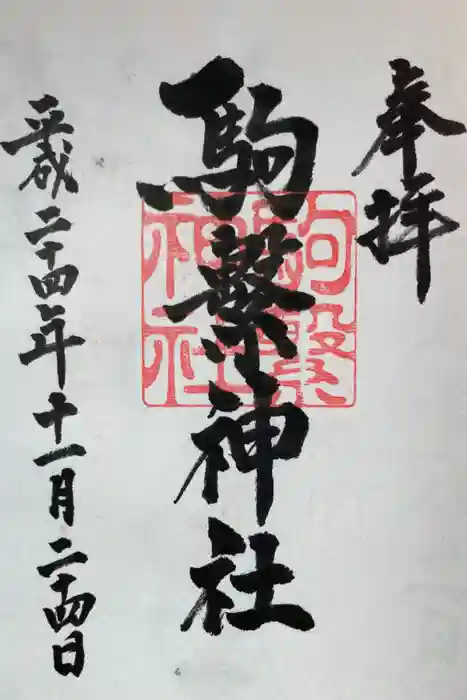 奉拝
駒繋神社
駒繋
神社
平成二十四年十一月二十四日